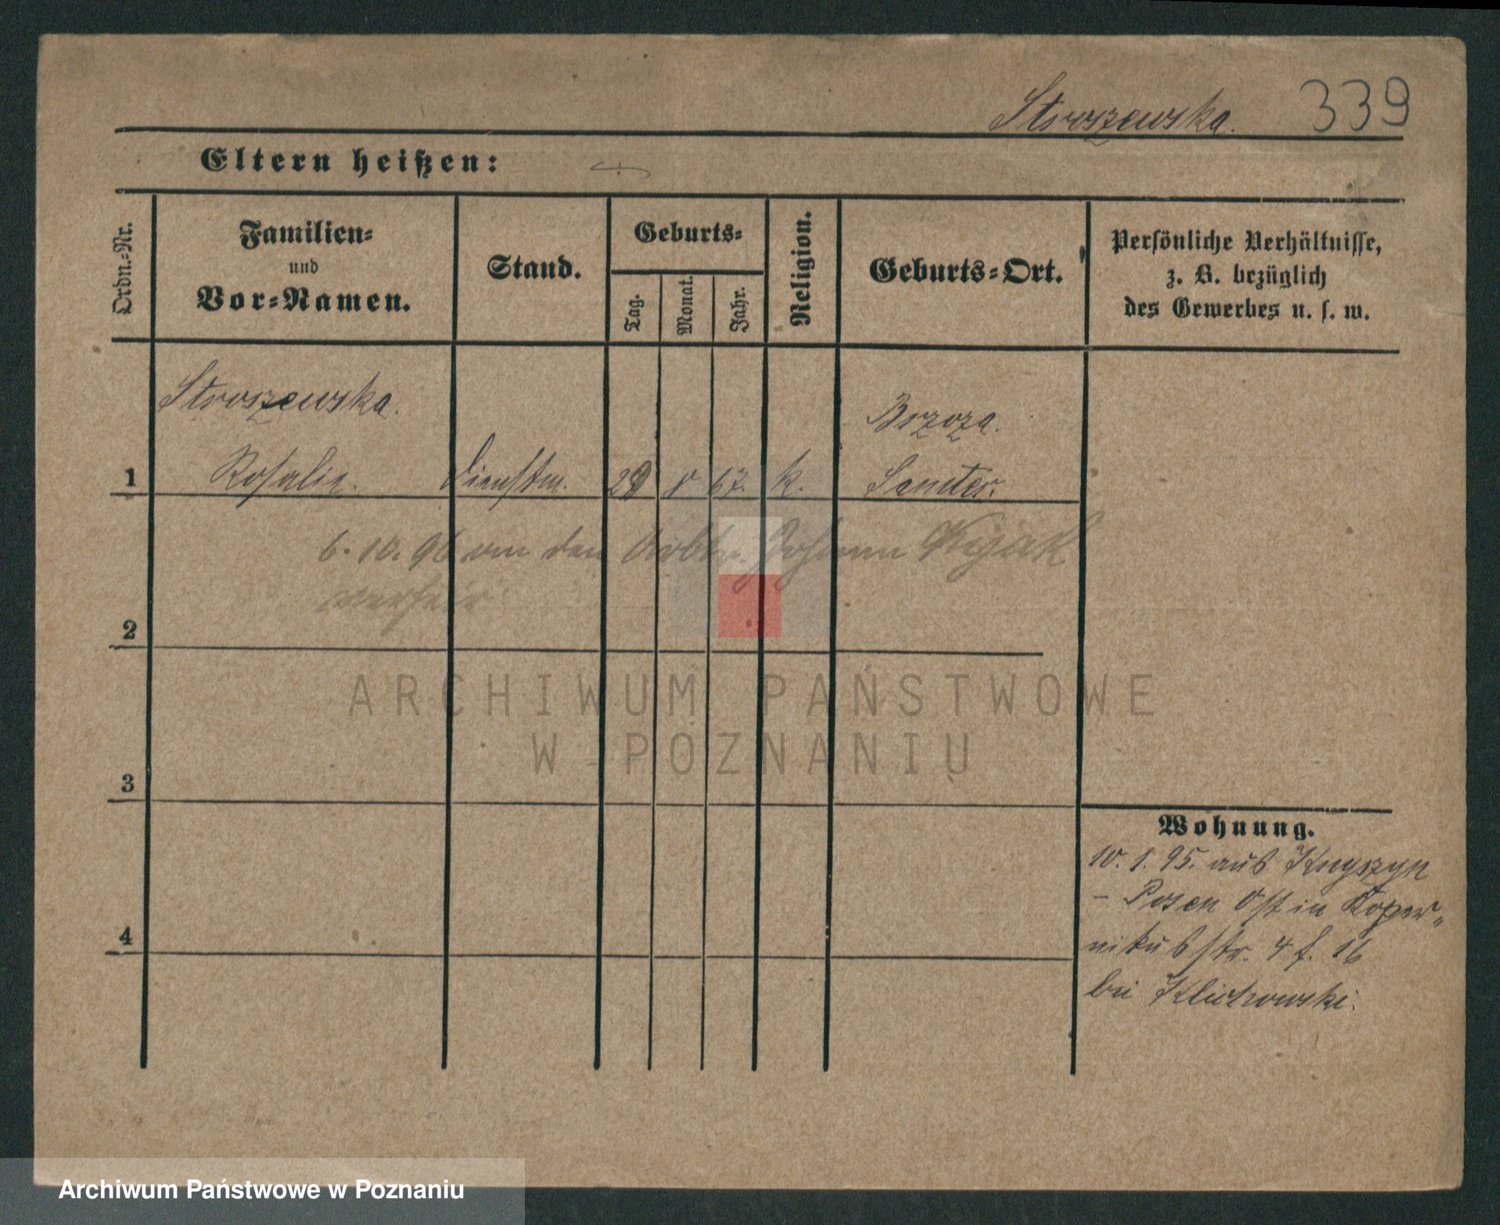 Stroszewska. 339
Eltern heißen:
Ordn.-Nr.
Familien-
und
Vor-Namen.
Stand.
Geburts-
Tag.
Monat.
Jahr.
Religion.
Geburts-Ort.
Persönliche Verhältnisse,
z. B. bezüglich
des Gewerbes u. s. w.
Stroszewska.
Brzoza.
1 Rosalie. Dienstm. 29 8 67. k. Samter.
6.10.96 an den Arbtr. Johann
2
ARCHIWUM PAŃSTWOWE
W POZNANIU
3
4
Wohnung.
10.1.95. aus Knyszyn
– Posen Ost in Koper-
nikusstr. 4 f. 16
bei Klichowski.
Archiwum Państwowe w Poznaniu